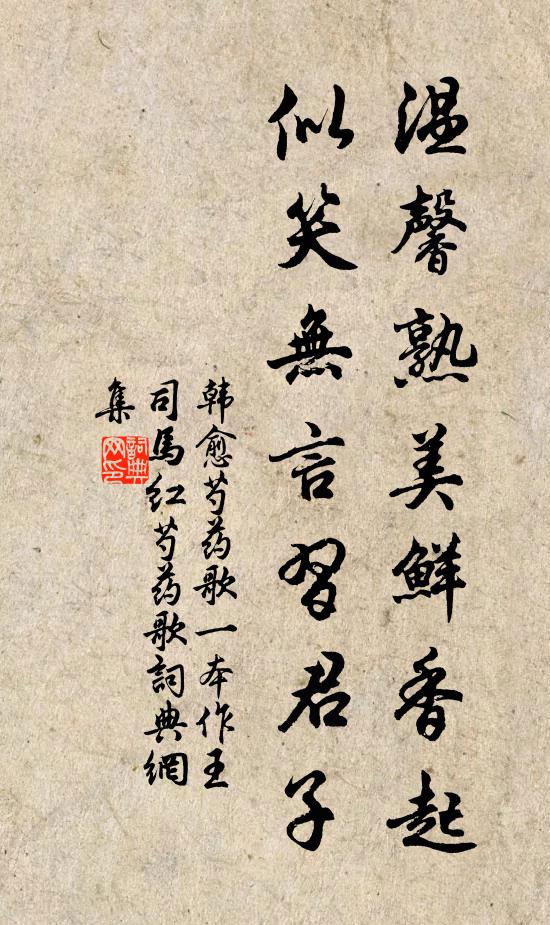 温馨熟美鮮香起
似笑無言習君子
韩愈芍药歌一本作王
司馬红芍药歌詞典網
集